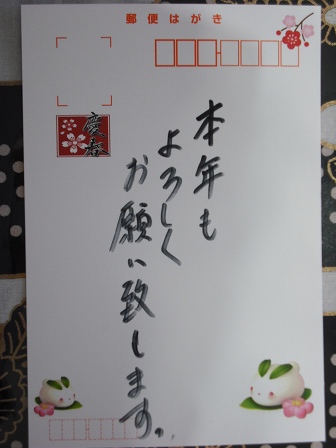 郵便はがき
慶春
本年も
よろしく
お願い致します。